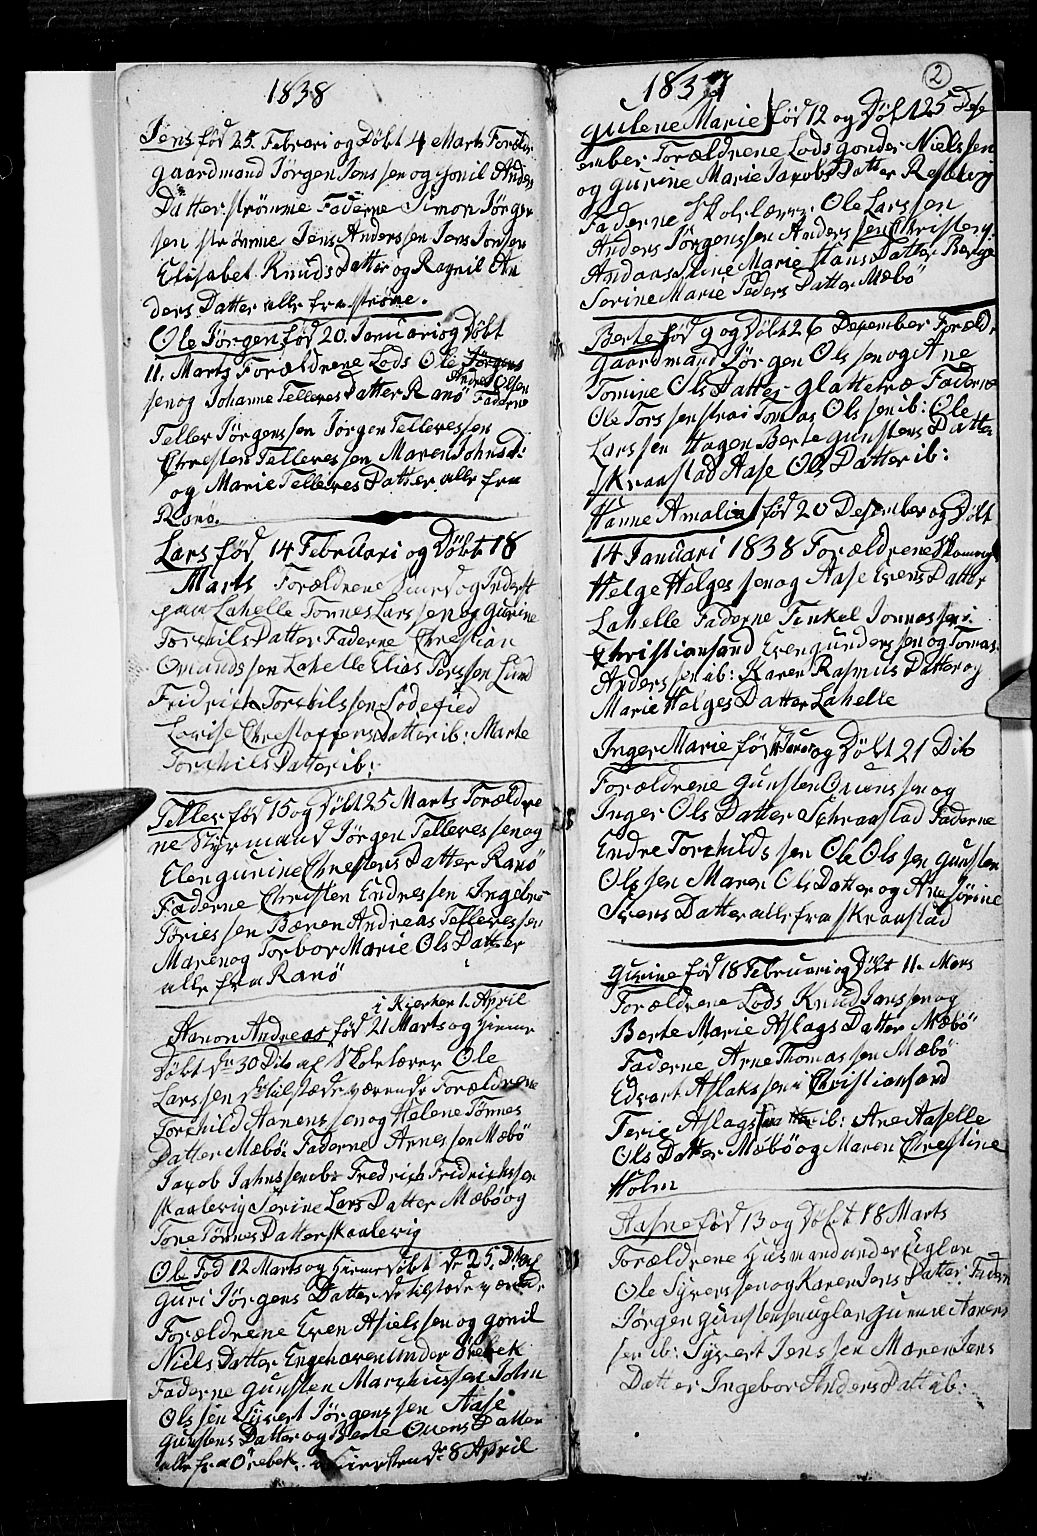 1838
Jens fød 25. Februari og Døbt 4 Marts Foræld
gaardmand Jørgen Jenssen og gonil Anders
Datter Strømme Faderne Simon Jørgen
sen strømme Jens Anderssen Jens Jonsen
Elisabet Knuds Datter og Ragnil An
ders Datter alle fra strøme.
Ole Jørgen fød 20. Januari og Døbt
11. Marts Forældrene Lods Ole Jørgens
Andres Olsen
sen og Johanne Telleres Datter Ranø Faderne
Teller Jørgenssen Jørgen Tellerssen
Chresten Tellerssen Maren Johns d:
og Marie Telleres Datter alle fra
Ranø.
Lars fød 14 Februari og Døbt 18
Marts Forældrene og Inderst
paa Lahelle Tønnes Larssen og gurine
Torkils Datter Faderne Chrestian
Omundssen Lahelle Elias Perssen Lund
Fridrich Torkilssen Lødefied
Lovise Chrestoffers datter ib: Marte
Torkils Datter ib:
Teller fød 15 og Døbt 25 Marts Forældre
ne Styrmand Jørgen Tellerssen og
Elen gurine Chrestens Datter Ranø
Faderne Christen Endressen Ingebr
Tøriessen Bæren Andreas Tellerssen
Maren og Torbor Marie Ols Datter
alle fra Ranø
i Kierken 1. April
Aanon Andreas fød 21 Marts og Hieme
Døbt dn 30 Dito af Skolelærer Ole
Larssen de tilstæde værende Forældrene
Torchild Aanenssen og Helene Tønnes
Datter Mæbø: Faderne Arnessen Mæbø
Jacob Jahnssen ib: Fredrich Fridrichssen
skaalevig Serine Lars Datter Mæbø og
Tone Tønnes Datter skaalevig
Ole Fød 12 Marts og Hieme døbt de 25. Dito af
Guri Jørgens Datter de tilstæde værend:
Forældrene Even Asielssen og gonil
Niels Datter Engehaven under Örebek
Faderne gunsten Marchussen John
Olssen Syvert Jørgenssen Aase
gunstens Datter og Berte Ouens Datter
alle fra Örebek. i Kierken de 8 April
2
1837
gulene Marie fød 12 og Døbt 25 Dese
ember Forældrene Lods gonder Nielssen
og gurine Marie Jacobs Datter Resevig
Faderne Skolelærer: Ole Larssen
Anders Jørgenssen Anderssen Christeng
Andaas Stine Marie Hans Datter Berge
Serine Marie Peders Datter Mæbö
Berte fød 9 og Døbt 26 Desember Foræld
gaardmand Jørgen Olssen og Ane
Tomine Ols Datter glattetræ Faderne
Ole Torssen strai Tomas Olssen ib: Ole
Larssen Hagen Berte gunstens Datter
skraastad Aase Ols Datter ib:
Hanne Amalia fød 20 Desember og Døbt
14 Januari 1838 Forældrene
Helge Helgessen og Aase Evens Datter
Lahelle Faderne Tinkel Jonnassen i
Christiansand Even gunderssen og Tomas
Anderssen ib: Karen Rasmus Datter og
Marie Helges Datter Lahelle
Inger Marie fød og Døbt 21 Dito
Forældrene gunsten Ouenssen og
Inger Ols Datter Schraastad Faderne
Endre Torchildssen Ole Olssen gunsten
Olssen Maren Ols Datter og Ane Sørine
Ivers Datter alle fra skraastad
gurine fød 18 Februari og Døbt 11. Mars
Forældrene Lods Knud Janssen og
Berte Marie Aslags Datter Mæbö
Faderne Arne Thomassen Mæbö
Edvart Aslakssen i Christiansand
Terie Aslagssen ib: Ane Aaselle
Ols Datter Mæbö og Maren Chrestine
Holm
Aasne fød 13 og Döbt 18 Marts
Forældrene Husmand under Uglan
Ole Syverssen og Karen Jens Datter: Fadern
Jørgen gunstensen uglan gunne Aanens
sen ib: Syvert Jenssen Maren Jens
Datter Ingebor Anders Datt ib: